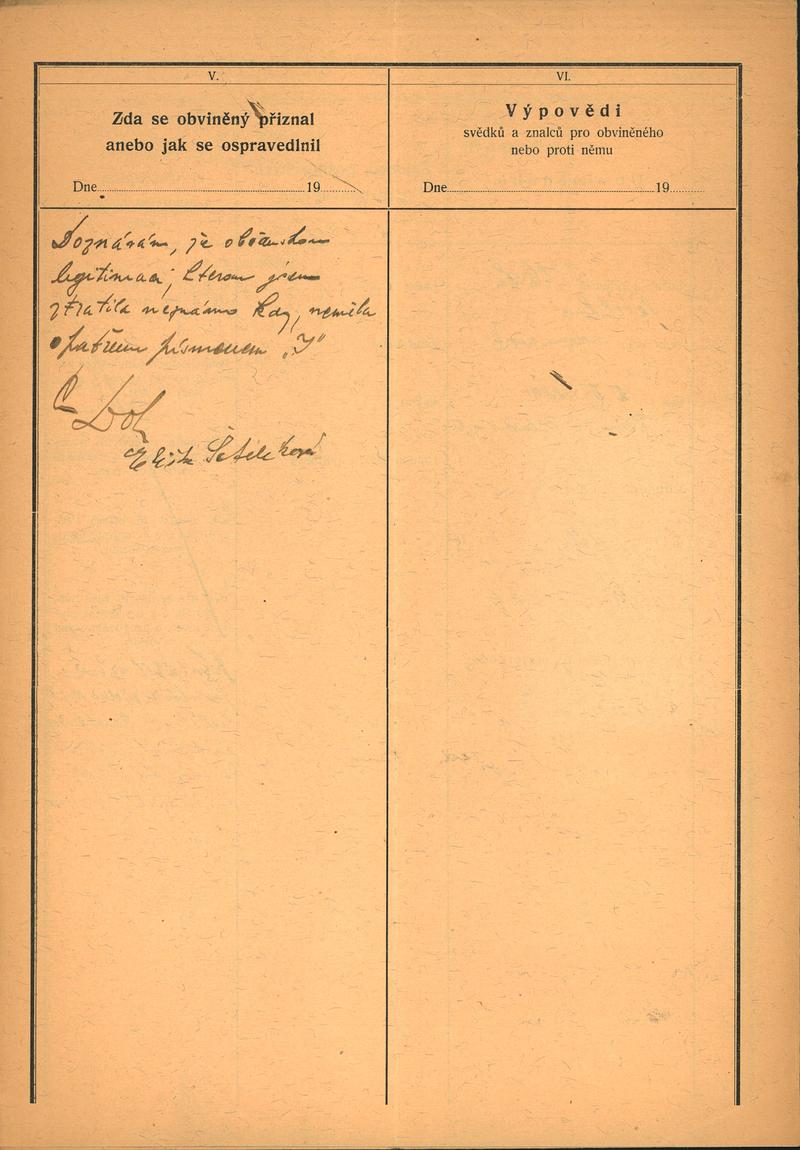 V.
Zda se obviněný přiznal
anebo jak se ospravedlnil
Dne 19
Doznávám, že občanskou
legitimaci, kterou jsem
ztratila neznámo kdy, neměla
opatřenu písmenem „J“
VI.
Výpovědi
svědků a znalců pro obviněného
nebo proti němu
Dne 19